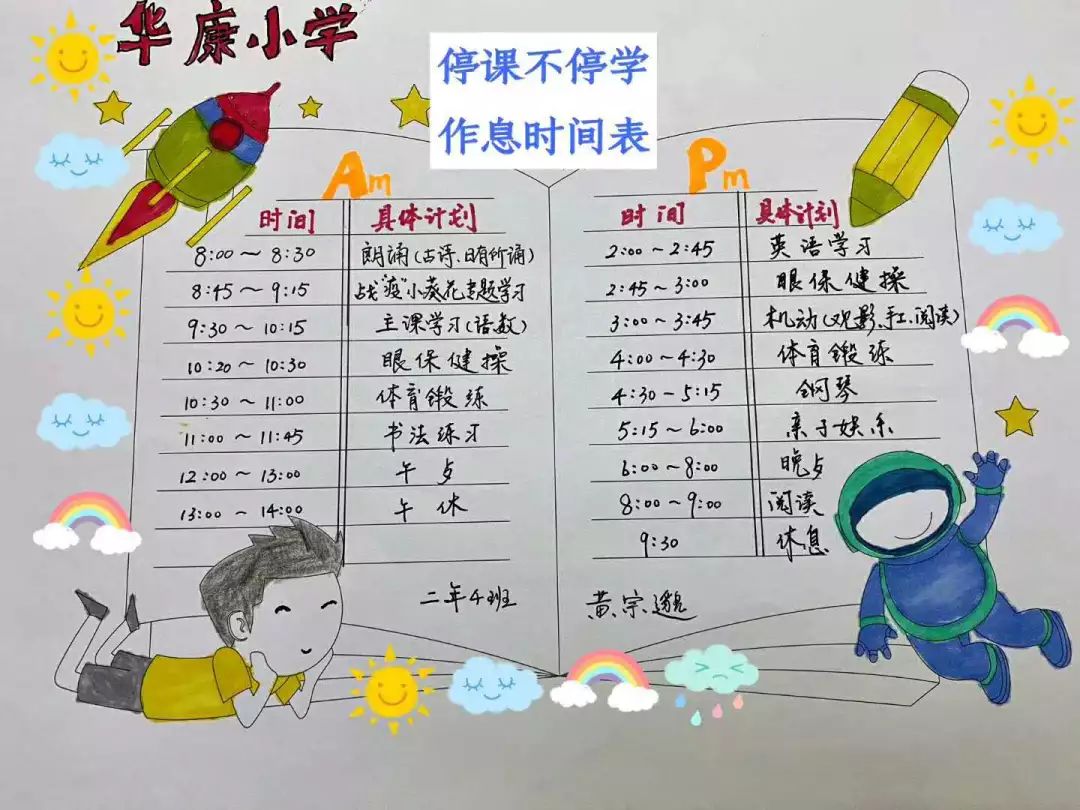 华康小学
停课不停学
作息时间表
Am
时间 具体计划
8:00~8:30 朗诵(古诗、日有所诵)
8:45~9:15 战"疫"小葵花专题学习
9:30~10:15 主课学习(语数)
10:20~10:30 眼保健操
10:30~11:00 体育锻练
11:00~11:45 书法练习
12:00~13:00 午歺
13:00~14:00 午休
Pm
时间 具体计划
2:00~2:45 英语学习
2:45~3:00 眼保健操
3:00~3:45 机动(观影、手工、阅读)
4:00~4:30 体育锻练
4:30~5:15 钢琴
5:15~6:00 亲子娱乐
6:00~8:00 晚歺
8:00~9:00 阅读
9:30 休息
二年4班
黄宗